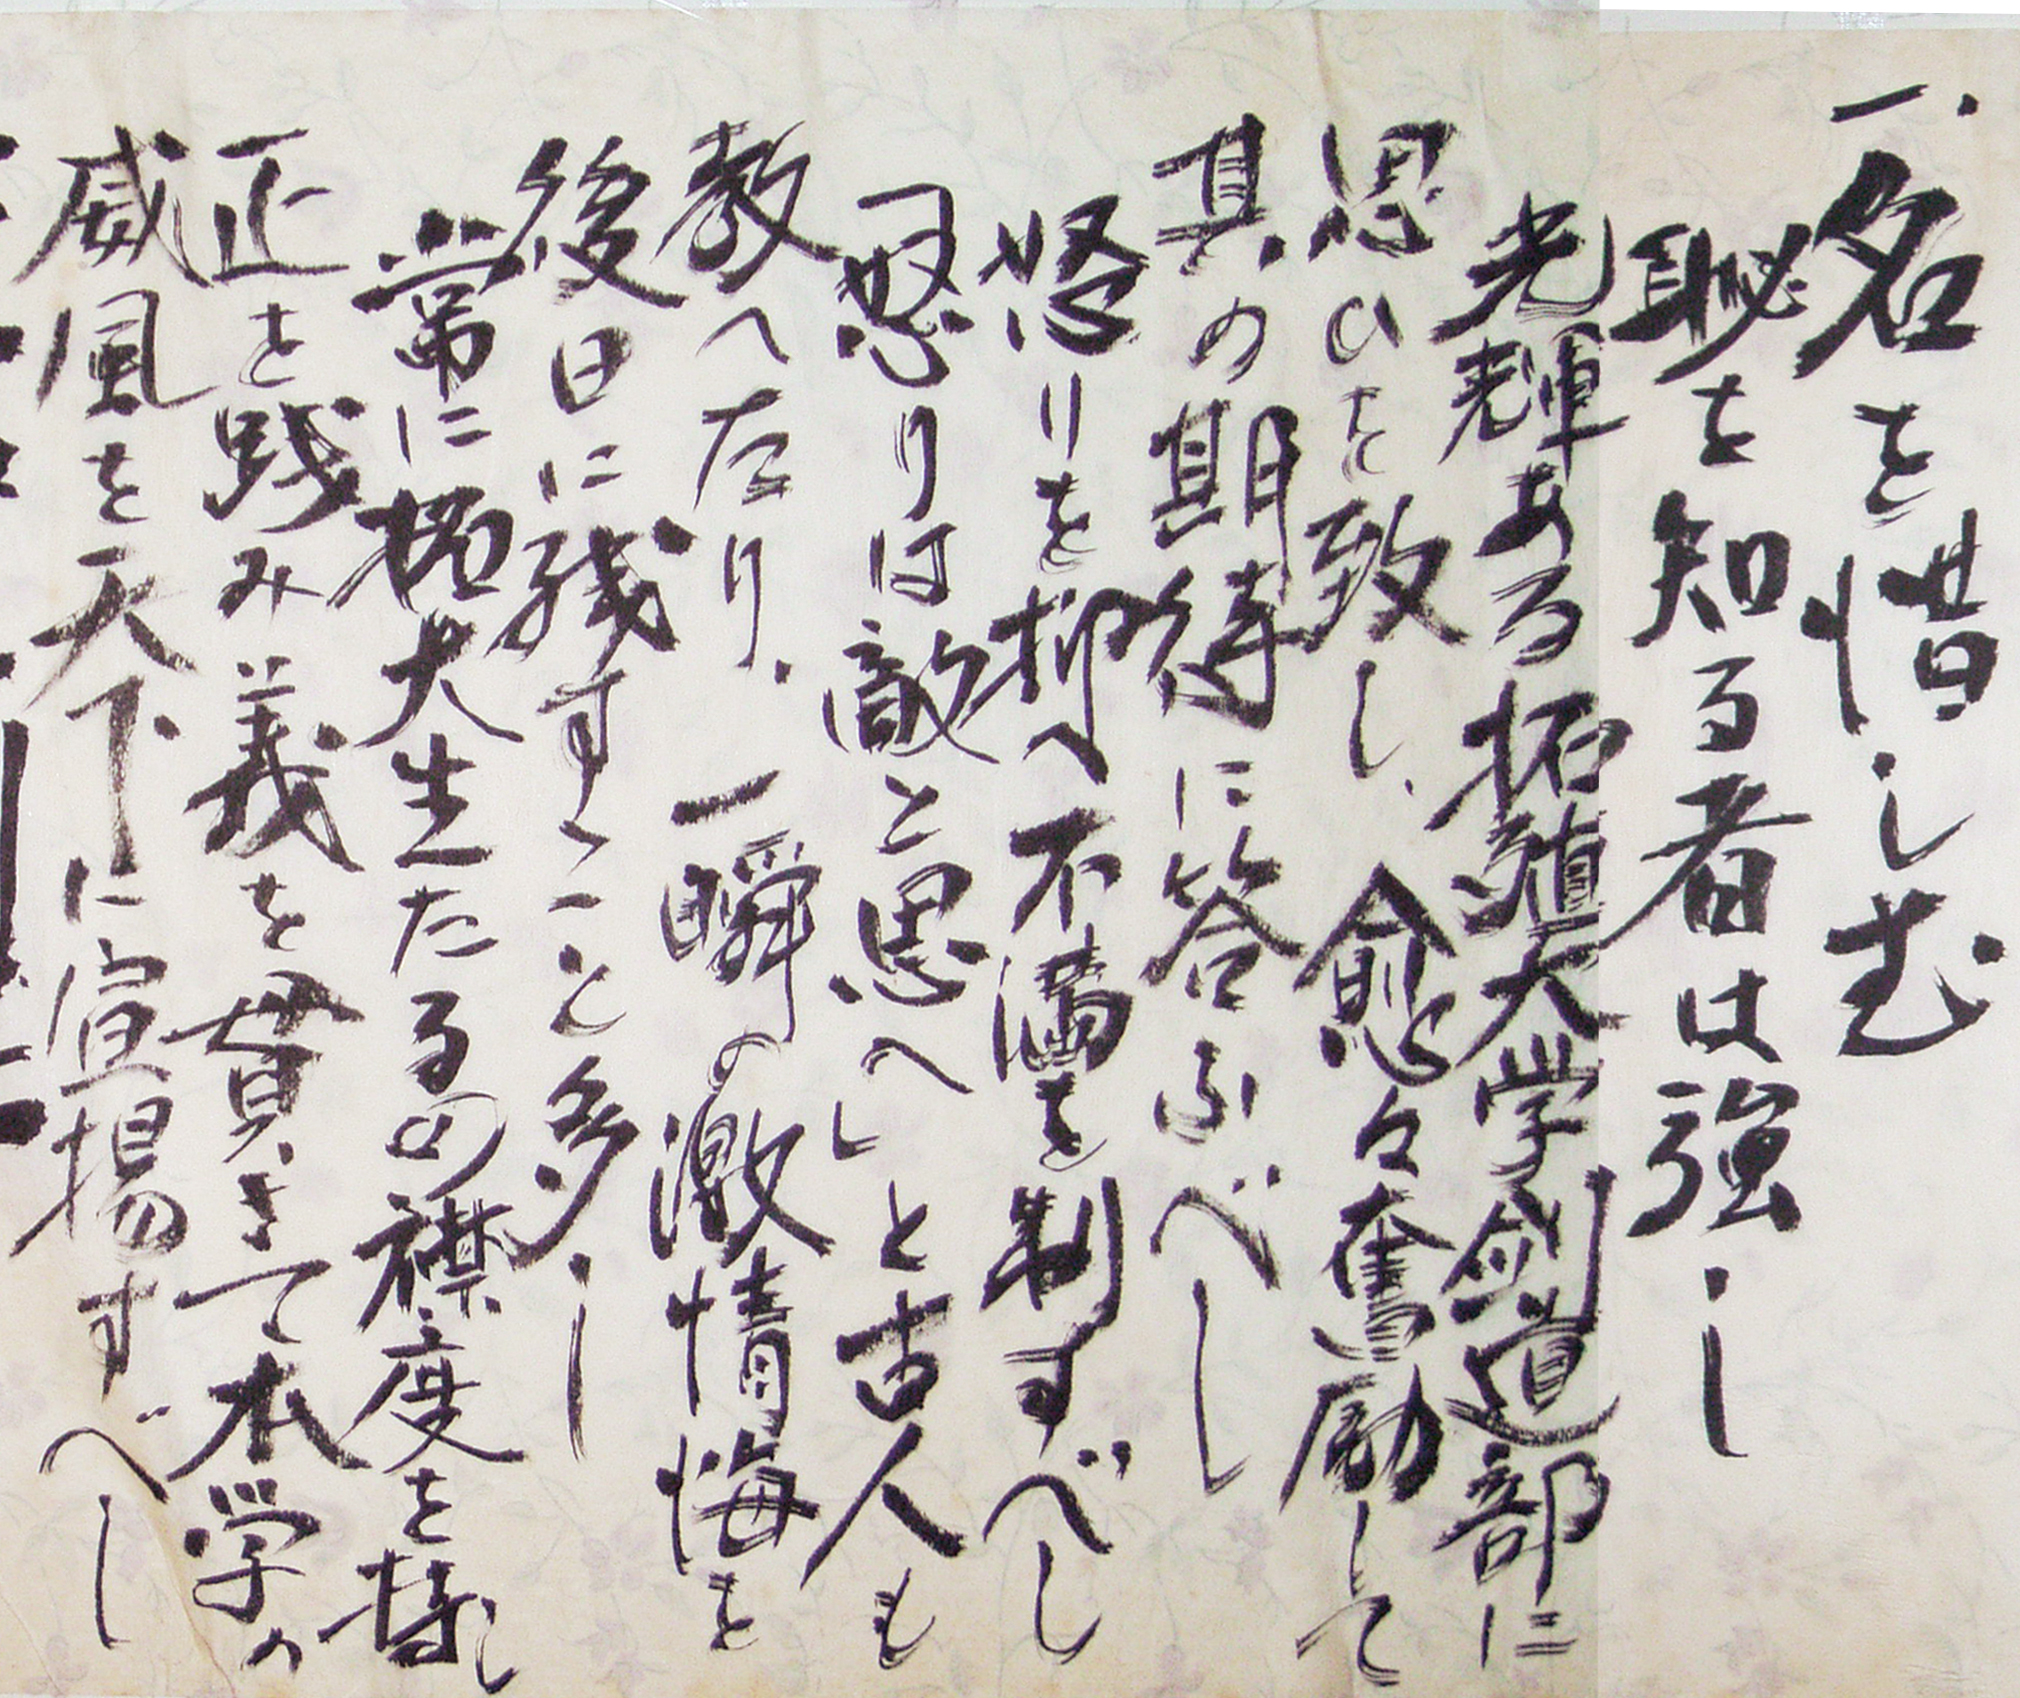 一、名を惜しむ
恥を知る者は強し
光輝ある拓殖大学剣道部に
思ひを致し、愈々奮励して
其の期待に答ふべし
怒りを抑へ不満を制すべし
怒りは敵と思へしと古人も
教へたり、一瞬の激情悔を
後日に残すこと多し
常に拓大生たるの襟度を持し
正を践み義を貫きて本学の
威風を天下に宣揚すべし